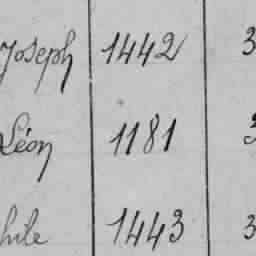 Joseph 1442 3
Léon 1181 3
hile 1443 3